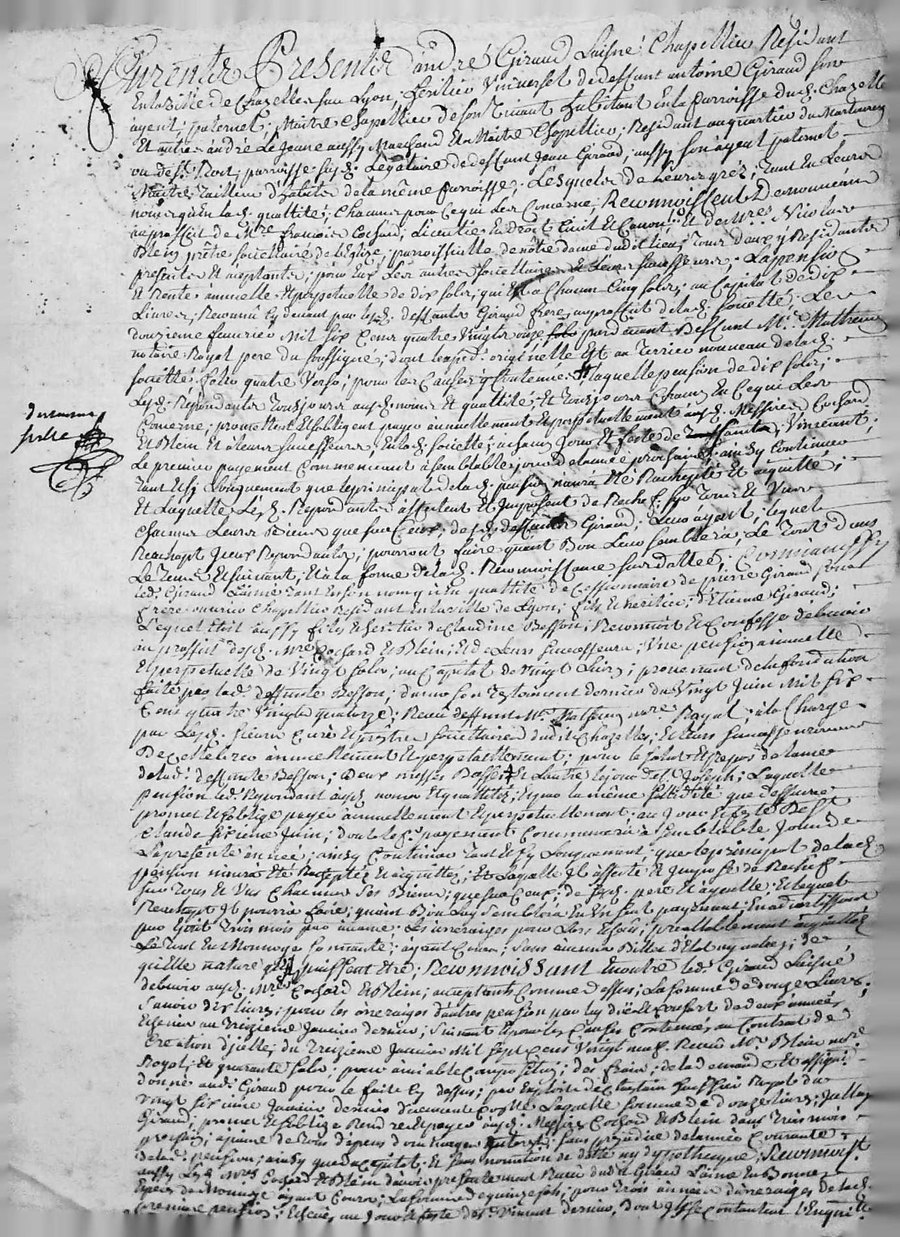 Furent Presents andré Giraud Laisné Chapellier Résidant
En la Ville de Chazelles sur Lyon, héritier Universel de deffunt antoine Giraud son
ayeul paternel, Maître Chapellier de son vivant habitant En la Parroisse dud. Chazelle
Et autre andré Le jeune aussy Marchand Et Maitre Chapellier, Residant au quartier du
ou de St. Roch, parroisse susd. Légataire de deffunt Jean Giraud, aussy son ayeul paternel
Maître Tailleur d'habits de la même parroisse, Lesquels de Leurs gréz, Tant En Leurs
noms qu'En lad. qualité, Chacun pour Ce qui Les Concerne, Reconnoissent
au proffit de Mre. françois Cochard, Licentié En Droit Civil Et Canon, Et de Mre. Nicolas
Blein prêtre sociétaire de l'Eglise parroissielle de nôtre dame dud. lieu, Tous deux y Residants
présents Et acceptants, pour Eux Les autres sociétaires Et Leurs successeurs, La pension
Et Rente annuelle Et perpetuelle de dix sols, qui Est a Chacun Cinq sols, au Capital de dix
Livres, Reconnue Cy devant par lesd. deffunts Giraud frere, au proffit de lad. société, Le
douzieme feuvrier Mil six Cens quatre Vingts onze pardevant deffunt Me. Mathieu
notaire Royal pere du soussigné, dont l'expé. originelle Est au Terrier nouveau de lad.
société, folio quatre Verso, pour les Causes y Contenues, Laquelle pension de dix sols,
Lesd. Repondants Toujours auxd. noms Et qualité, Et Toujours Chacun En Ce qui Les
Concerne, promettent Et s'obligent payer annuellement Et perpetuellement auxd. Messires Cochard
Et Blein Et a leurs successeurs, En lad. société, a Chacun Jour Et feste de Saint Vincent,
Le premier payement Commencant a semblable jour de l'année prochaine, ainsy Continuer
Tant Et sy Longuement que le principal de lad. pension n'aura Eté Rachepté Et aquitté,
Et Laquelle Lesd. Repondants affectent Et Imposent de Rechef sur Tous Et Un
Chacuns Leurs Biens que sur Ceux desd. deffunts Giraud, Leurs ayeul, lequel
Reachapt Iceux Repondants, pourront faire quant Bon Leur semblera, Le Tout dans
Le Terme Et suivant, Et a la forme de lad. Reconnoissance susdattée, Comme aussy
led. Giraud L'ainé Tant En son nom qu'En qualité de Cessionnaire de pierre Giraud son
frere ouvrier Chapellier Residant En la ville de Lyon, fils Et heritier d'Etienne Giraud,
Lequel Etoit aussy fils Et heritier de Claudine Besson, Reconnoit Et Confesse debvoir
au proffit desd. Mres. Cochard Et Blein, Et de Leurs successeurs, Une pension annuelle
Et perpetuelle de Vingt sols, au Capital de Vingt Livres, provenant de la fondation
faite par lad. deffunte Besson, dans son Testament dernier du Vingt Juin Mil six
Cens quatre Vingts quatorze, Receu deffunt Me. nore. Royal, a la Charge
par Lesd. sieurs Curé Et prêtres sociétaires dud. Chazelles, Et Leurs successeurs
De Celebrer annuellement Et perpetuellement, pour le salut Et Repos de l'ame
de lad. deffunte Besson, deux messes Basses Et L'autre le jour de St. Joseph, Laquelle
pension led. Repondant auxd. noms Et qualités, Et par la même que dessus
promet Et s'oblige payer annuellement Et perpetuellement, au Jour Et feste de St.
Claude sixieme Juin, dont le pr. payement Commencera a semblable Jour de
La presente année, ainsy Continuer Tant Et sy Longuement, que le principal de lad.
pension n'aura Eté Rachepté Et aquitté, Et Laquelle Il affecte Et Impose de Rechef
sur Tous Et Uns Chacuns Ses Biens, que sur Ceux de sesd. pere Et ayeulle, Et lequel
Reachapt Il pourra faire, quant Bon Luy Semblera En Un seul payement, En advertissant
par Ecrit Trois mois par avance, Les arrerages pour Lors Echus, préalablement aquittés
Le Tout En Monnoye sonnante, ayant Cours, Sans aucuns Billets d'Etat ny autres, de
quelle nature qu'Ils puissent être; Reconnoissant En outre led. Giraud Laisné
debvoir auxd. Mres. Cochard Et Blein, acceptants Comme dessus, La somme de douze Livres,
Sçavoir dix livres, pour les arrerages d'autres pension par luy düe de deux années,
Echues au Treizieme Janvier dernier, Suivant Et pour les Causes Contenues au Contrat de
Création d'Icelle, du Treizieme Janvier Mil sept Cens Vingt neuf, Receu Me. Blein nore.
Royal, Et quarante sols, pour amiable Composition, des fraix, de la demande Et assigné.
donnée aud. Giraud pour le fait Cy dessus, par Exploit de Huissier Royal du
Vingt sixieme Janvier dernier duement Laquelle somme de douze livres,
Giraud, promet Et s'oblige Rend. Et payer auxd. Messires Cochard Et Blein dans Trois mois
prochains, a peine de Tous depens domages Interest, sans prejudice de l'année Courante
de lad. pension, ainsy que du Capital, Et sans novation de datte ny d'ypotheque, Reconnoissent
aussy Lesd. Mres. Cochard Et Blein d'avoir presentement Receu dud. Giraud L'ainé En Bonnes
Especes de Monnoye ayant Cours, La somme de quinze sols, pour Trois années d'arrerages de lad.
premiere pension, Echus, au Jour Et feste de St. Vincent dernier, dont